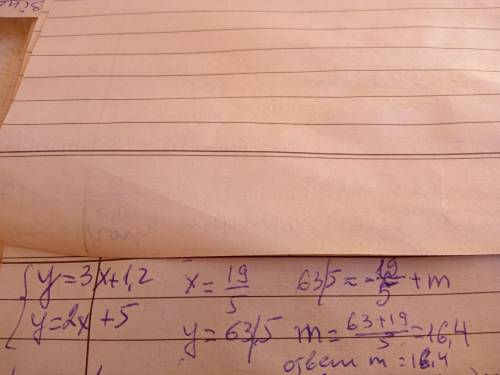 { y=3x+1,2   x=19/5   63/5=-19/5+m
y=2x+5   y=63/5   m=63+19/5=16,4
ответ m=16,4